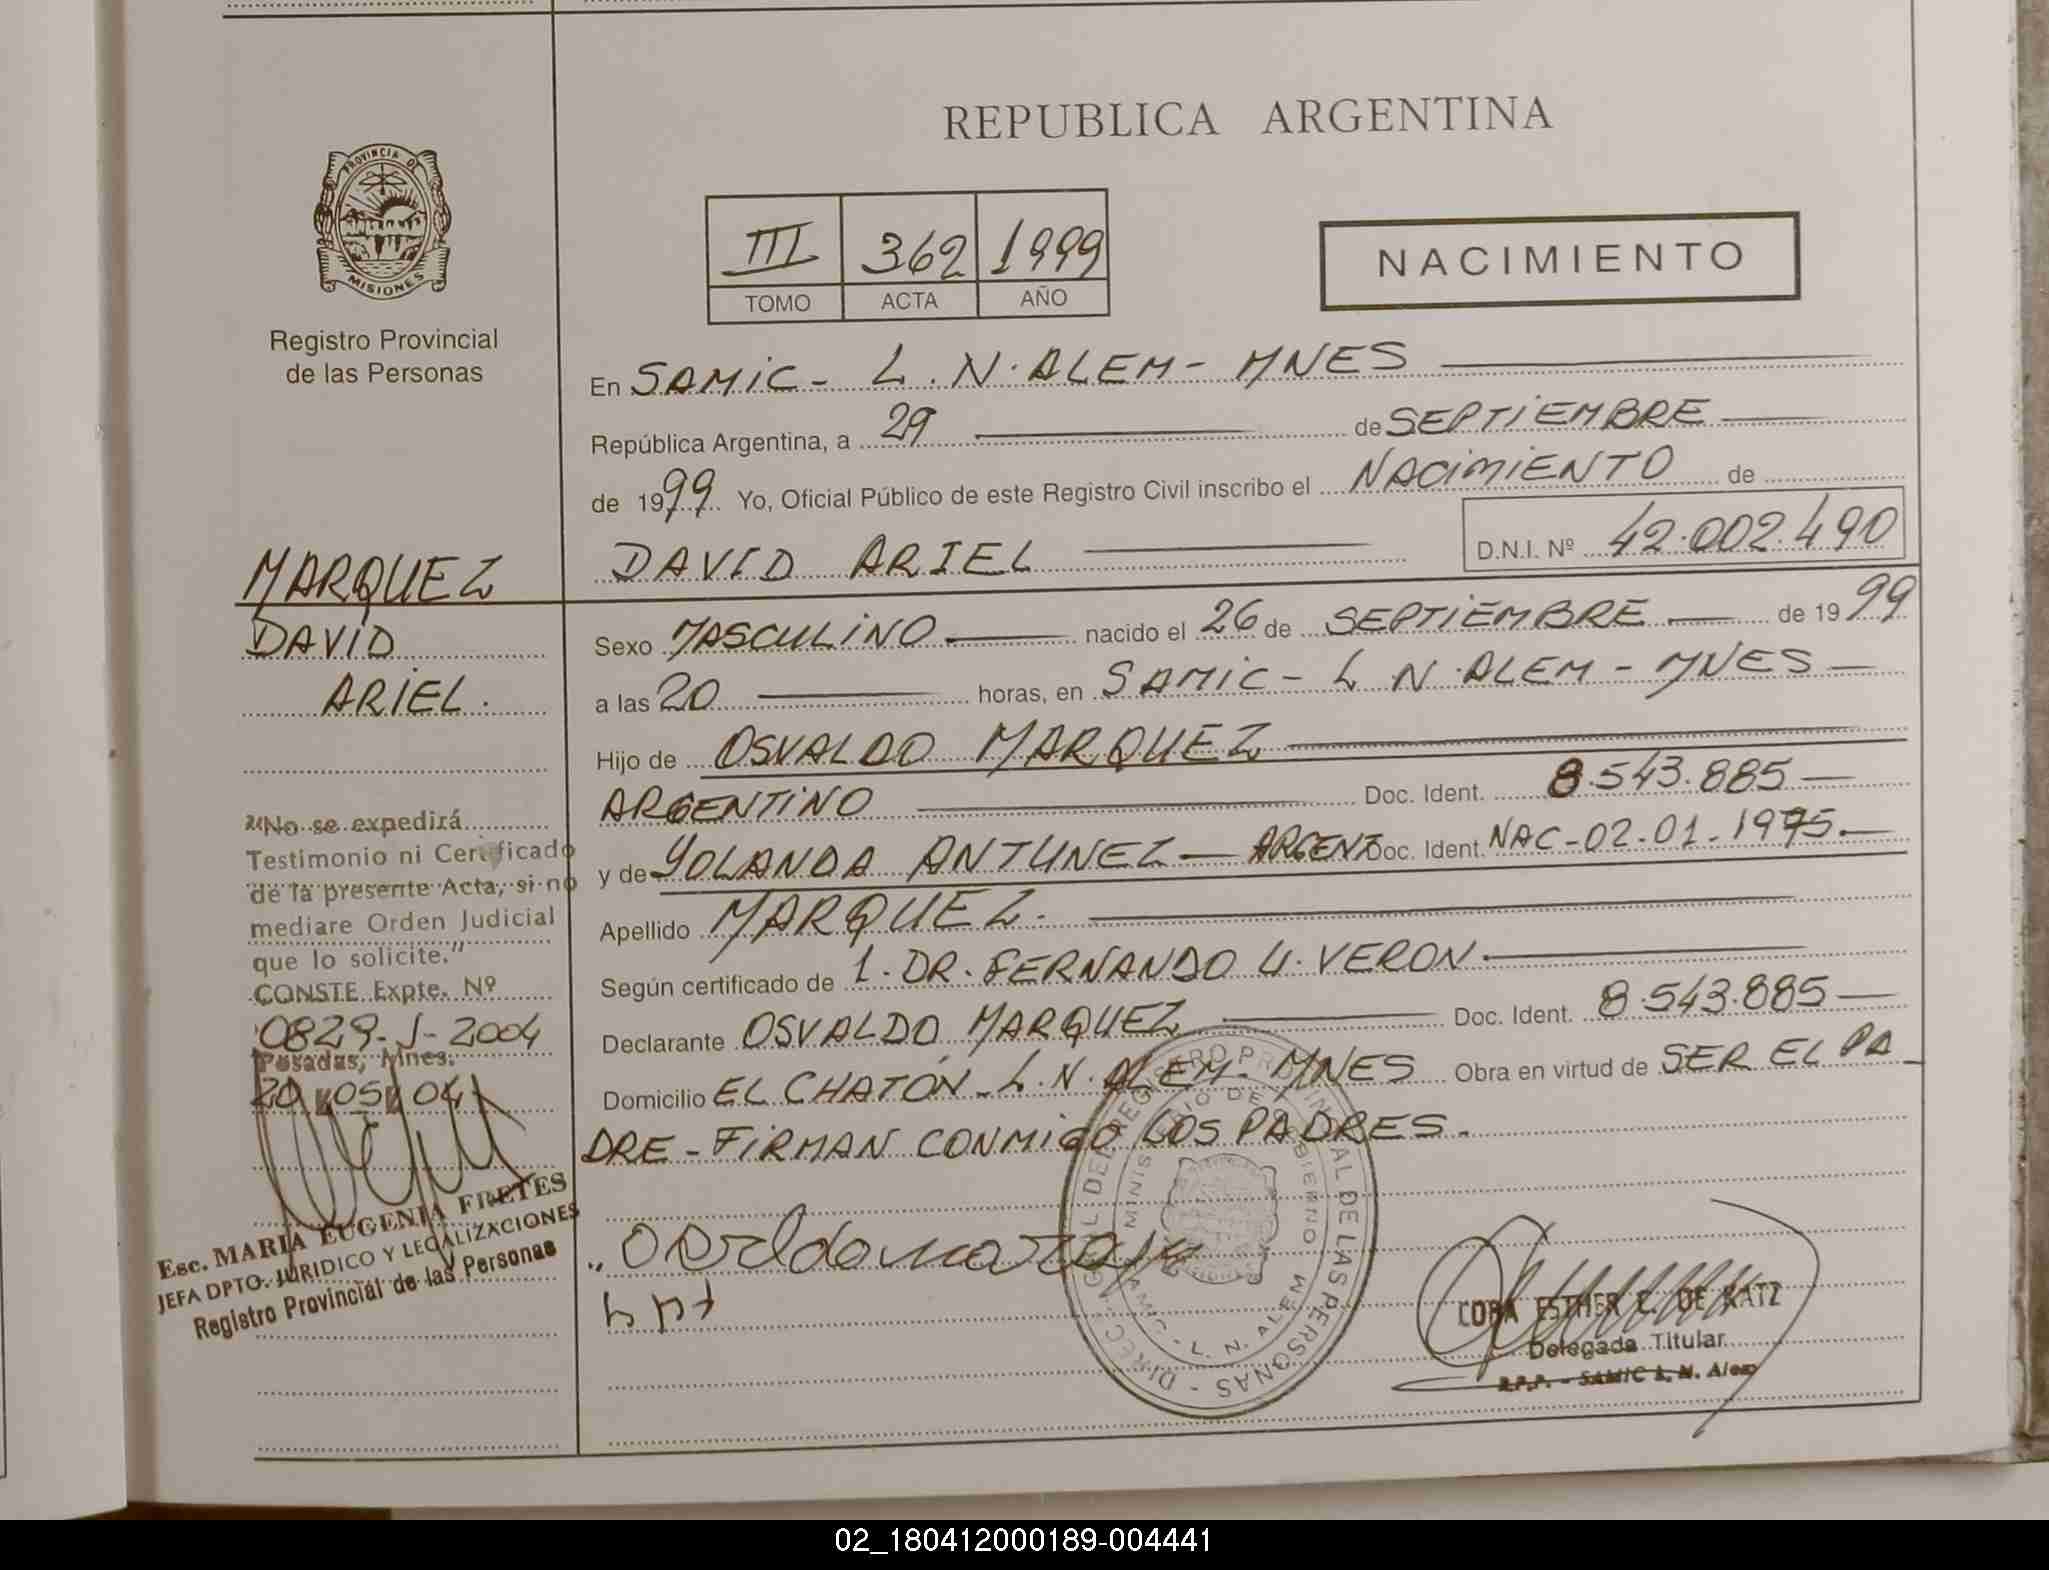 REPUBLICA ARGENTINA
PROVINCIA DE
MISIONES
Registro Provincial
de las Personas
III 362 1999
TOMO ACTA AÑO
NACIMIENTO
En SAMiC - L. N. ALEM - MNES
República Argentina, a 29 de SEPTiEMBRE
de 1999 Yo, Oficial Público de este Registro Civil inscribo el NACiMiENTO de
DAVID ARIEL D.N.I. Nº 42.002.490
MARQUEZ
DAVID
ARIEL.
Sexo MASCULiNO nacido el 26 de SEPTiEMBRE de 1999
a las 20 horas, en SAMiC - L N. ALEM - MNES
Hijo de OSVALDO MARQUEZ
ARGENTiNO Doc. Ident. 8.543.885
y de YOLANDA ANTUNEZ - ARGENT Doc. Ident. NAC-02-01-1975.
Apellido MARQUEZ.
Según certificado de 1. DR. FERNANDO U. VERON
Declarante OSVALDO MARQUEZ Doc. Ident. 8.543.885
Domicilio EL CHATÓN - L. N. ALEM - MNES Obra en virtud de SER EL PA-
DRE - FiRMAN CONMiGO LOS PADRES.
"No se expedirá
Testimonio ni Certificado
de la presente Acta, si no
mediare Orden Judicial
que lo solicite."
CONSTE Expte. Nº
0829-J-2004
Posadas, Mnes.
20 05 04
Esc. MARIA EUGENIA FRETES
JEFA DPTO. JURIDICO Y LEGALIZACIONES
Registro Provincial de las Personas
SAMIC - L. N. ALEM
CORA ESTHER C. DE KATZ
Delegada Titular
R.P.P. - SAMIC L. N. Alem
02_180412000189-004441